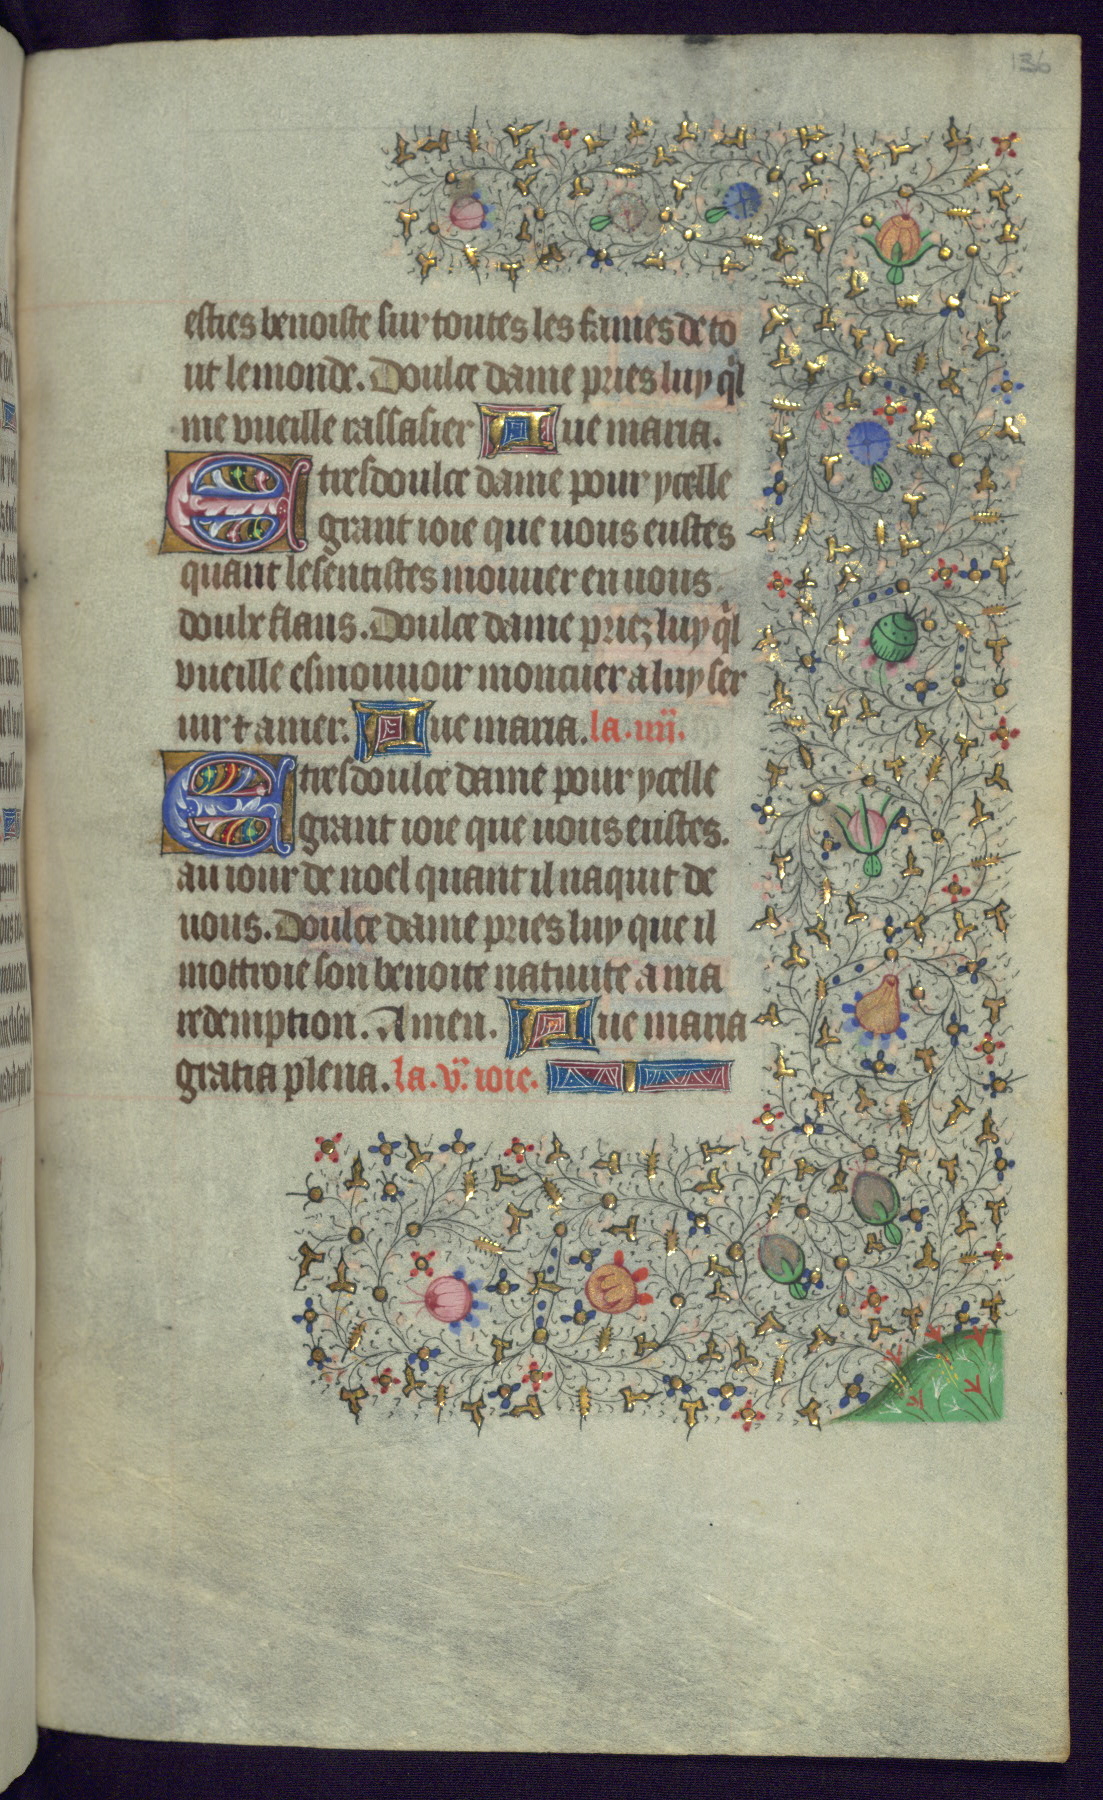 136
esties benoiste sur toutes les fames de to
ut le monde. Doulce dame pries luy ql
me vueille rassasier Aue maria.
E tresdoulce dame pour ycelle
grant ioie que uous eustes
quant le sentistes mouuer en uous
doulx flans. Doulce dame priez luy ql
vueille esmouuoir mon cuer a luy ser
uir & amer. Aue maria. la .iiii.
E tresdoulce dame pour ycelle
grant ioie que uous eustes.
au iour de noel quant il naquit de
uous. Doulce dame pries luy que il
mottroie son benoite natiuite a ma
redemption. Amen. Aue maria
gratia plena. la .v. ioie.